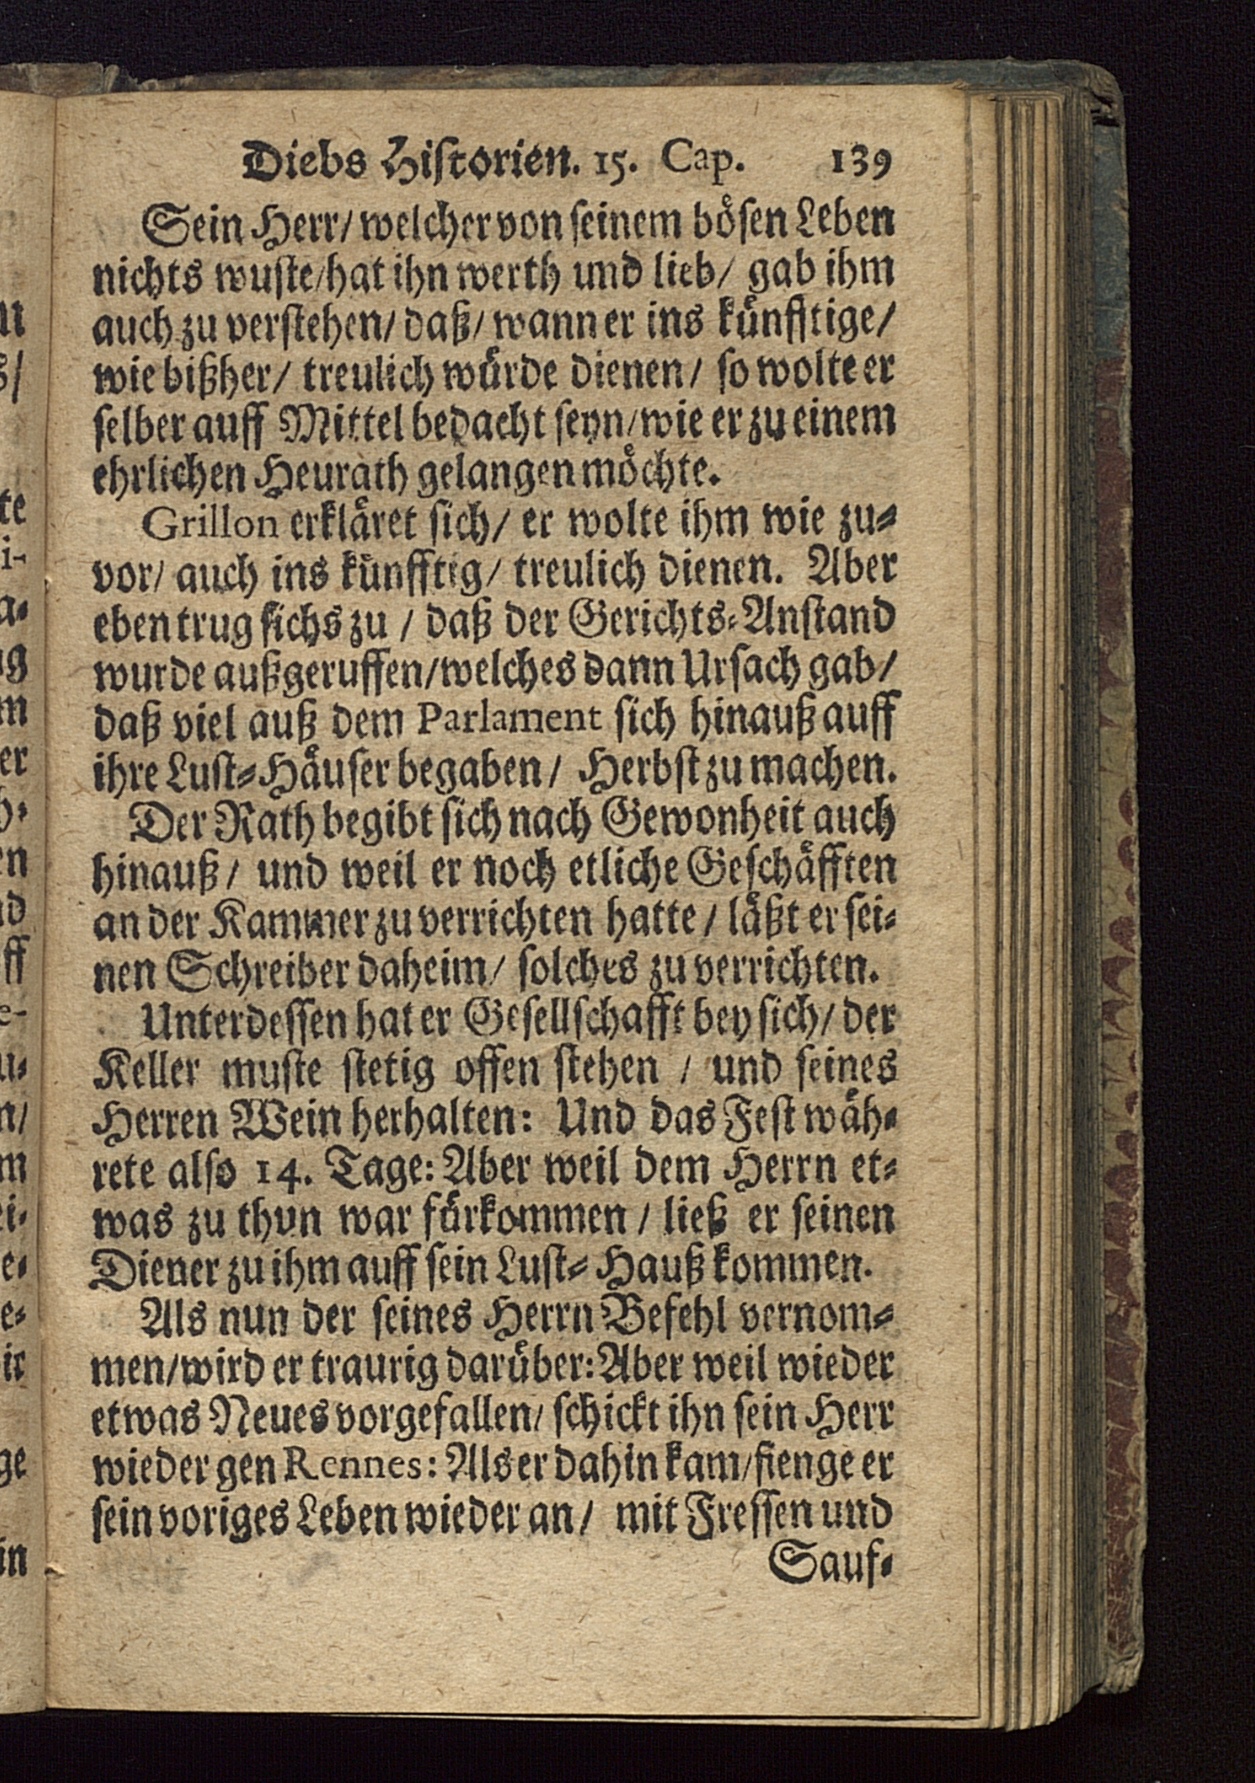 Diebs Historien. 15. Cap. 139
Sein Herr/ welcher von seinem bösen Leben
nichts wuste/hat ihn werth und lieb/ gab ihm
auch zu verstehen/ daß/ wann er ins künfftige/
wie bißher/ treulich würde dienen/ so wolte er
selber auff Mittel bedacht seyn/wie er zu einem
ehrlichen Heurath gelangen möchte.
Grillon erkläret sich/ er wolte ihm wie zu-
vor/ auch ins künfftig/ treulich dienen. Aber
eben trug sichs zu / daß der Gerichts-Anstand
wurde außgeruffen/welches dann Ursach gab/
daß viel auß dem Parlament sich hinauß auff
ihre Lust-Häuser begaben/ Herbst zu machen.
Der Rath begibt sich nach Gewonheit auch
hinauß/ und weil er noch etliche Geschäfften
an der Kammer zu verrichten hatte/ läßt er sei-
nen Schreiber daheim/ solches zu verrichten.
Unterdessen hat er Gesellschafft bey sich/ der
Keller muste stetig offen stehen / und seines
Herren Wein herhalten: Und das Fest wäh-
rete also 14. Tage: Aber weil dem Herrn et-
was zu thun war fürkommen / ließ er seinen
Diener zu ihm auff sein Lust-Hauß kommen.
Als nun der seines Herrn Befehl vernom-
men/wird er traurig darüber: Aber weil wieder
etwas Neues vorgefallen/ schickt ihn sein Herr
wieder gen Rennes: Als er dahin kam/fienge er
sein voriges Leben wieder an/ mit Fressen und
Sauf-